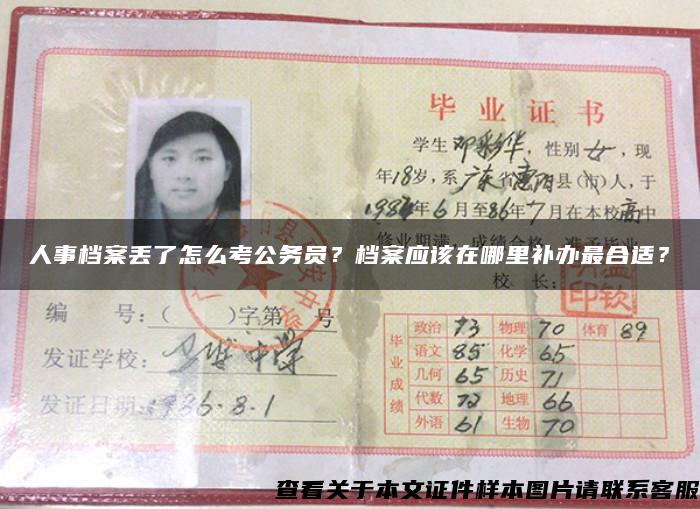 毕业证书
学生邓彩华，性别女，现
年18岁，系广东省惠阳县(市)人，于
198 年6月至86年7月在本校高中
修业期满，成绩合格，准予毕业
人事档案丢了怎么考公务员？档案应该在哪里补办最合适？
校 长：
编 号：( )字第 号
发证学校： 中学
发证日期：1986.8.1
毕业成绩
政治 73 物理 70 体育 89
语文 85 化学 65
几何 65 历史 71
代数 72 地理 66
外语 61 生物 70
查看关于本文证件样本图片请联系客服